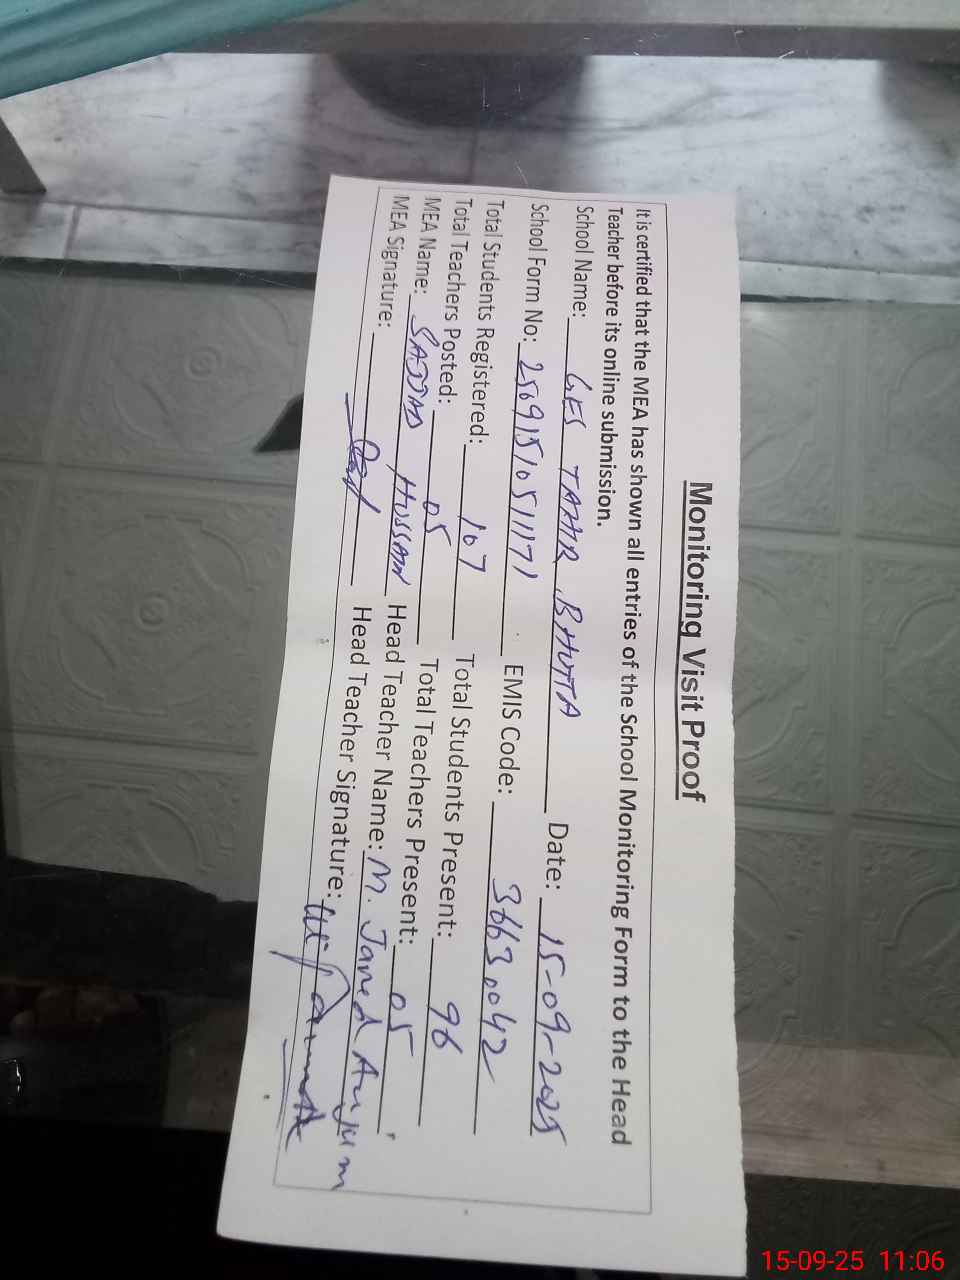 Monitoring Visit Proof
It is certified that the MEA has shown all entries of the School Monitoring Form to the Head
Teacher before its online submission.
School Name: GES TAHIR BHUTTA Date: 15-09-2025
School Form No: 250915105111171 EMIS Code: 36630042
Total Students Registered: 107 Total Students Present: 96
Total Teachers Posted: 05 Total Teachers Present: 05
MEA Name: SAJJAD HUSSAIN Head Teacher Name: M. Javed Anjum
MEA Signature: Head Teacher Signature:
15-09-25 11:06